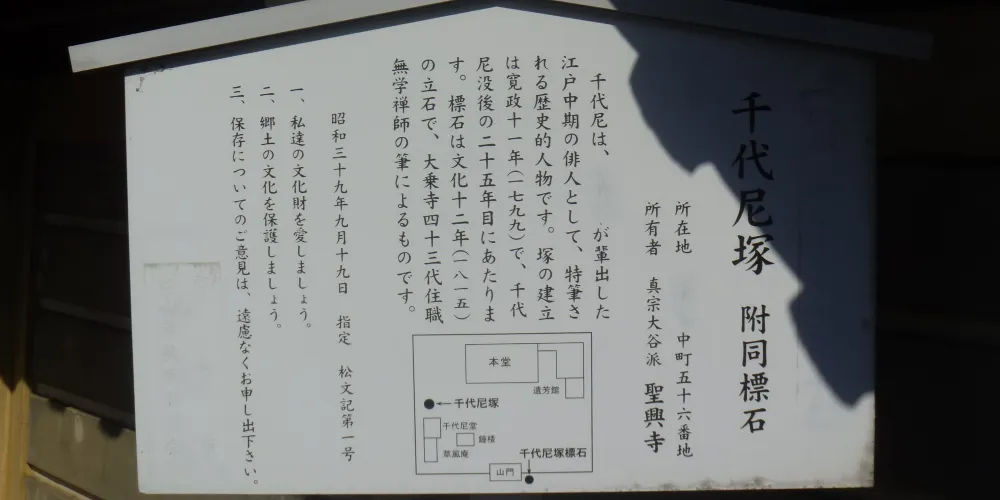 千代尼塚 附同標石
所在地 中町五十六番地
所有者 真宗大谷派 聖興寺
千代尼は、 が輩出した
江戸中期の俳人として、特筆さ
れる歴史的人物です。塚の建立
は寛政十一年(一七九九)で、千代
尼没後の二十五年目にあたりま
す。標石は文化十二年(一八一五)
の立石で、大乗寺四十三代住職
無学禅師の筆によるものです。
昭和三十九年九月十九日 指定 松文記第一号
一、私達の文化財を愛しましょう。
二、郷土の文化を保護しましょう。
三、保存についてのご意見は、遠慮なくお申し出下さい。
本堂
遺芳館
千代尼塚
千代尼堂
鐘楼
草風庵
千代尼塚標石
山門